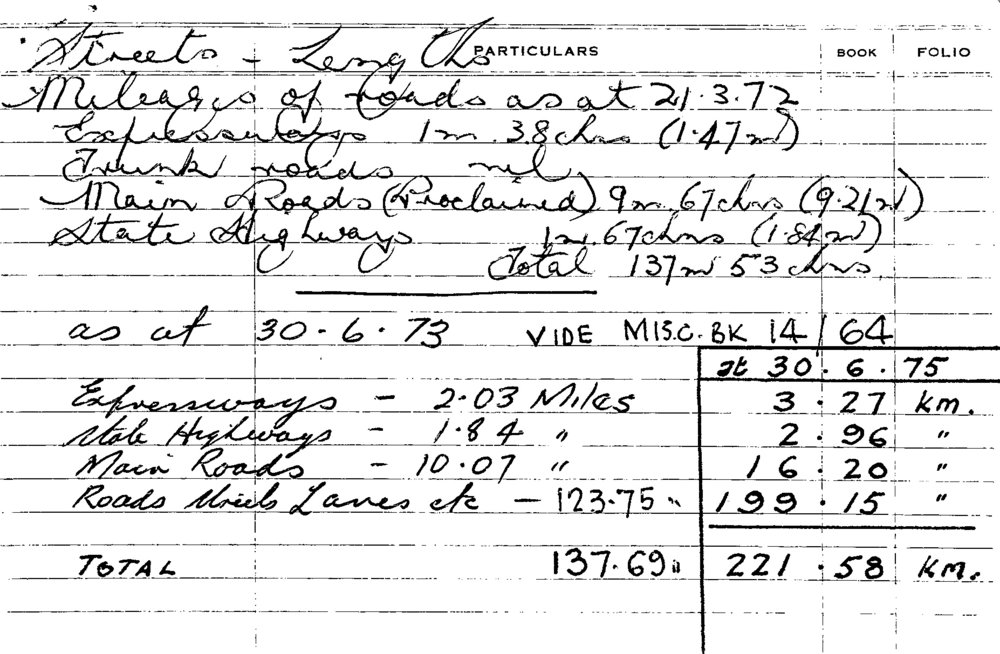 Streets - Lengths PARTICULARS BOOK FOLIO
Mileages of roads as at 21.3.72
Expressways 1m. 38chns (1.47m)
Trunk roads nil
Main Roads (Proclaimed) 9m. 67chns (9.21m)
State Highways 1m. 67chns (1.84m)
Total 137m 53 chns.
as at 30.6.73 VIDE MISC. BK 14/64
at 30.6.75
Expressways - 2.03 Miles 3.27 km.
State Highways - 1.84 " 2.96 "
Main Roads - 10.07 " 16.20 "
Roads Streets Lanes etc - 123.75 " 199.15 "
TOTAL 137.69 " 221.58 km.